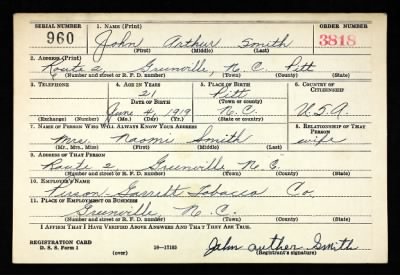 SERIAL NUMBER 1. NAME (Print) ORDER NUMBER
960 John Arthur Smith 3818
(First) (Middle) (Last)
2. ADDRESS (Print)
Route 2, Greenville, N.C. Pitt
(Number and street or R. F. D. number) (Town) (County) (State)
3. TELEPHONE 4. AGE IN YEARS 5. PLACE OF BIRTH 6. COUNTRY OF CITIZENSHIP
21 Pitt
DATE OF BIRTH (Town or county)
June 4, 1919 N.C. U.S.A.
(Exchange) (Number) (Mo.) (Day) (Yr.) (State or country)
7. NAME OF PERSON WHO WILL ALWAYS KNOW YOUR ADDRESS 8. RELATIONSHIP OF THAT PERSON
Mrs. Naomi Smith wife
(Mr., Mrs., Miss) (First) (Middle) (Last)
9. ADDRESS OF THAT PERSON
Route 2, Greenville N.C.
(Number and street or R. F. D. number) (Town) (County) (State)
10. EMPLOYER'S NAME
Person-Garrett Tobacco Co.
11. PLACE OF EMPLOYMENT OR BUSINESS
Greenville N.C.
(Number and street or R. F. D. number) (Town) (County) (State)
I AFFIRM THAT I HAVE VERIFIED ABOVE ANSWERS AND THAT THEY ARE TRUE.
REGISTRATION CARD
D. S. S. Form 1 (over) 16—17105 John auther Smith
(Registrant's signature)